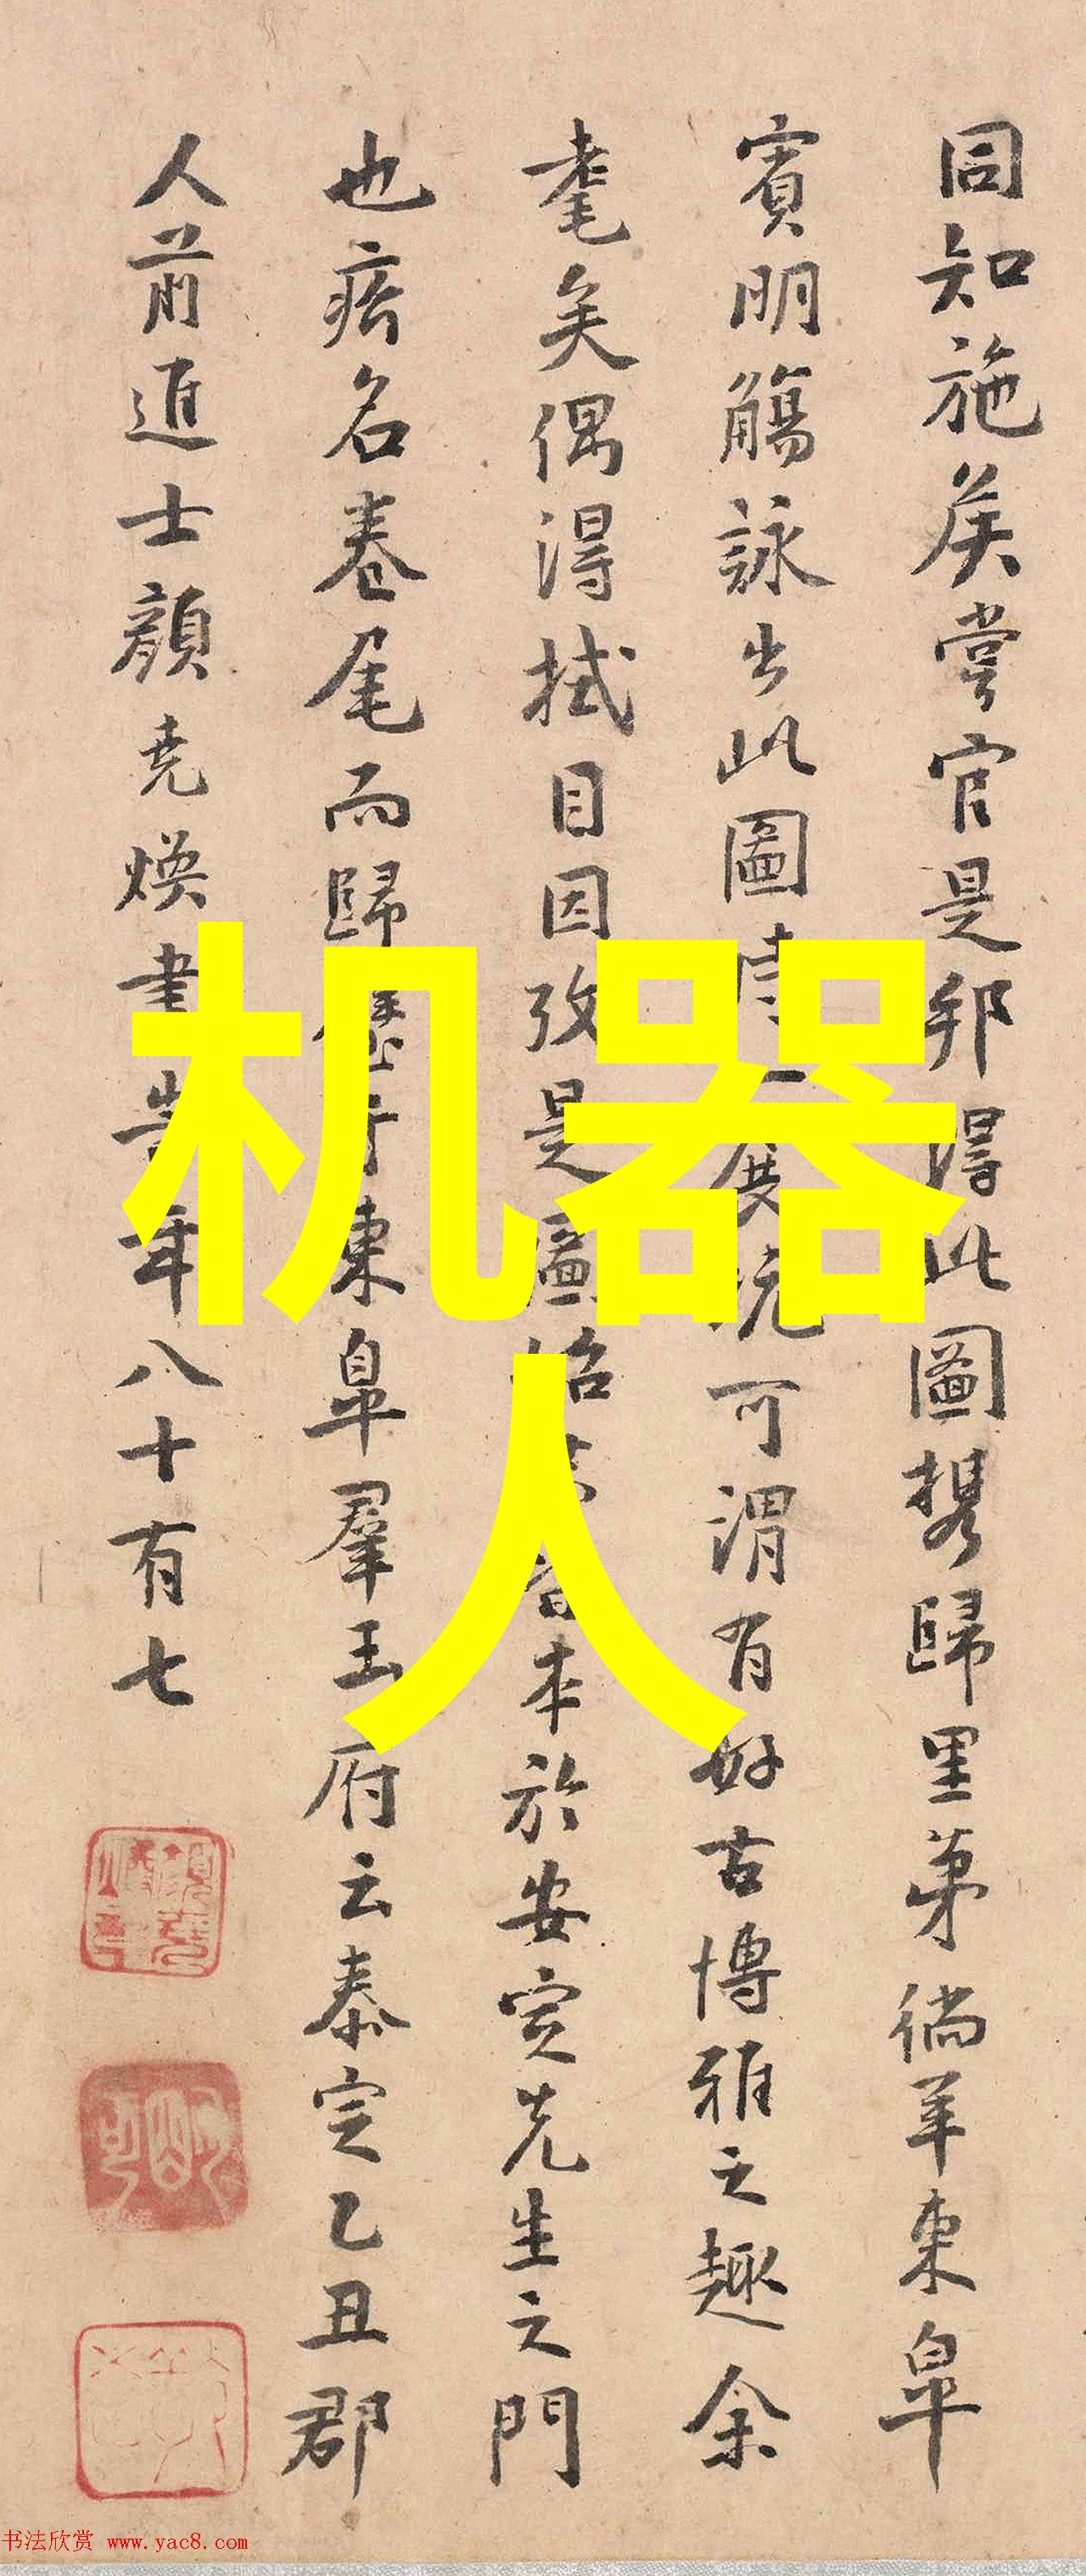 同知施矦嘗官是邦得此圖携歸里苐徜羊東皐
賓明觴詠出此圖展玩可謂有好古博雅之趣余
耄矣偶得拭目因攷是本於安定先生之門
也痞名卷尾而歸于東皐羣玉府云泰定乙丑郡
人前進士顔堯煥書旹年八十有七
机器
人
书法欣赏 www.yac8.com